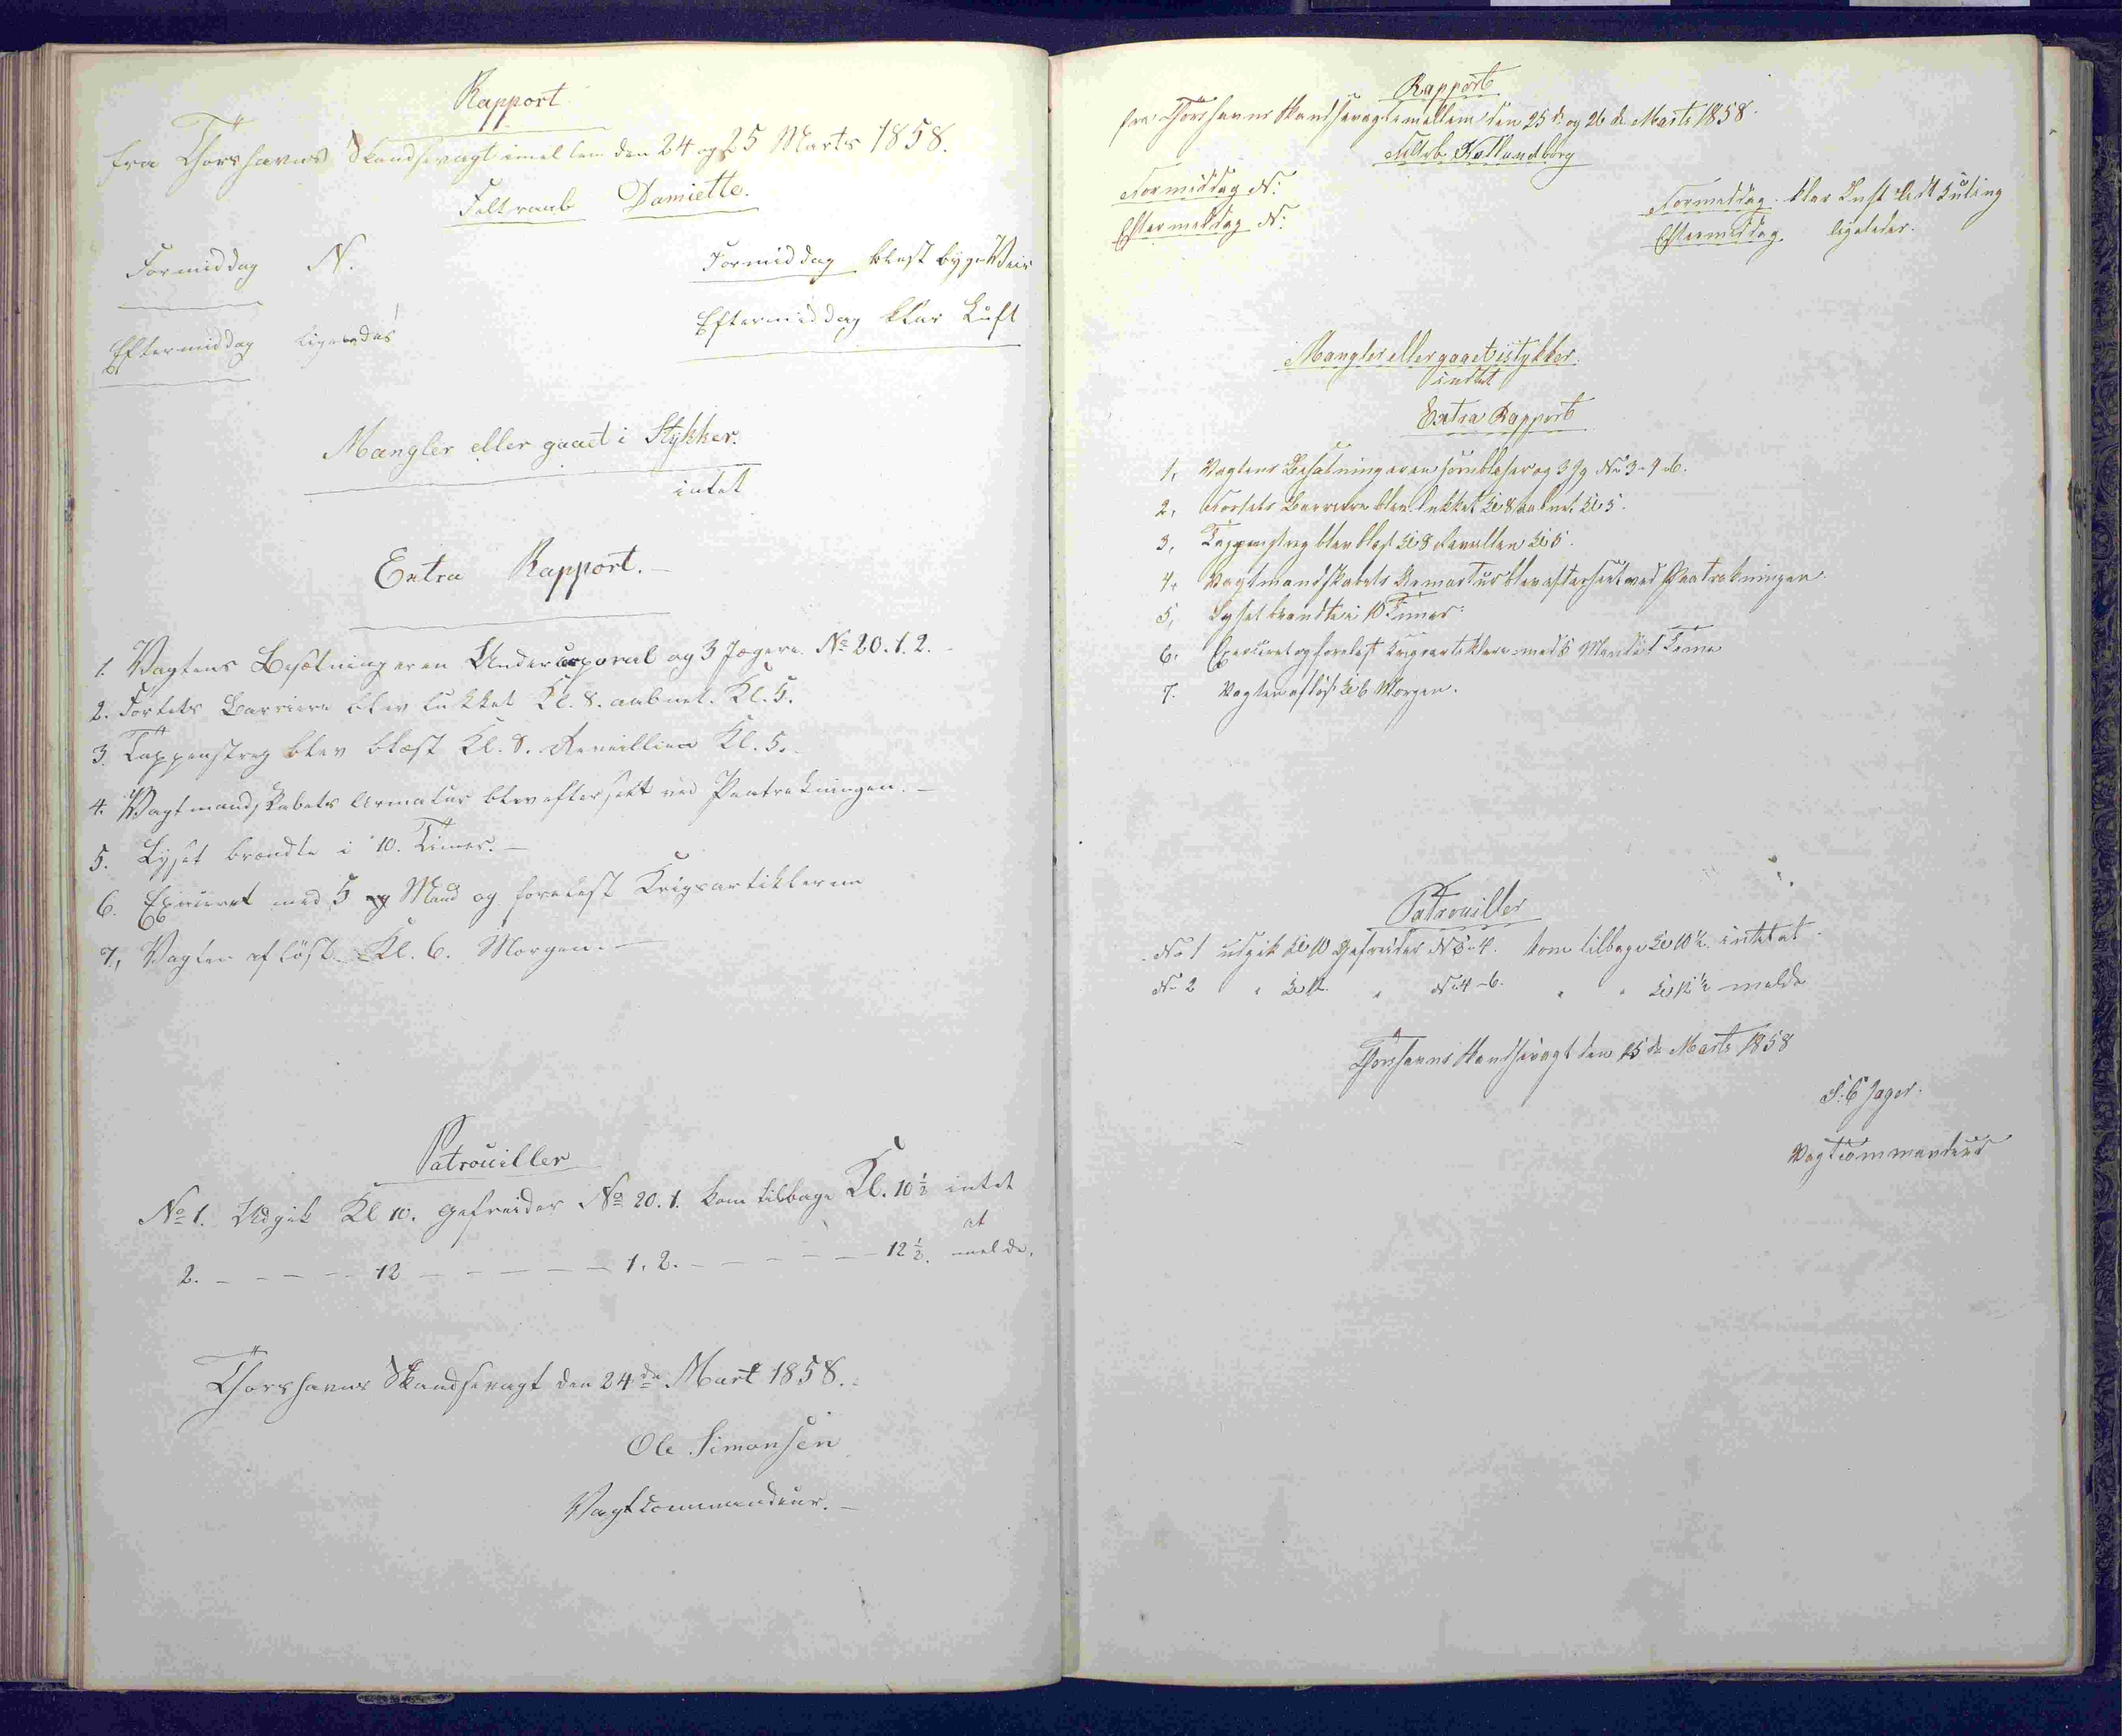 Rapport
fra Thorshavns Skandsevagt imellem den 24 og 25 Marts 1858.
Feltraab Damiette.
Formiddag N. Formiddag blæst byge Veir
Eftermiddag ligeledes Eftermiddag klar Luft
Mangler eller gaaet i Stykker.
intet
Extra Rapport.
1. Vagtens Besætning er en Undercorporal og 3 Jægere No 20. 1. 2.
2. Fortets Barriere blev lukket Kl. 8. aabnet. Kl. 5.
3. Tappenstreg blev blæst Kl. 8. Reveillien Kl. 5.
4. Vagtmandskabets Armatur blev efterseet ved Paatrækningen.
5. Lyset brændte i 10. Timer.
6. Exerceret med 5 Mand og forelæst Krigsartiklerne
7, Vagten afløst Kl. 6. Morgen.
Patrouiller
No 1. Udgik Kl 10. Gefreider No 20. 1. kom tilbage Kl. 10½ intet
at
2. - - - - 12 - - - - - 1. 2. - - - - - 12½. melde.
Thorshavns Skandsevagt den 24de Mart 1858.
Ole Simonsen
Vagtkommandeur.
Rapport
fra Thorshavns Skandsevagt imellem den 25de og 26de Marts 1858.
Feltrb. Kallundborg
Formiddag N: Formiddag klar Luft lidt Kuling
Eftermiddag N: Eftermiddag ligeledes.
Mangler eller gaaet istykker
intet
Extra Rapport
1, Vagtens Besætning er en Hornblæser og 3 Jg No 3-4-6.
2, Fortets Barriere blev lukket Kl 8 aabnet Kl 5.
3, Tappenstreg blev blæst Kl 8 Revellien Kl 5.
4, Vagtmandskabets Armartur blev efterseet ved Paatrækningen.
5, Lyset brændte i 10 Timer.
6, Exerceret og forelæst Krigsartiklerne med 5 Mand i 1 Time
7. Vagten afløst Kl 6 Morgen.
Patrouiller
No 1 udgik Kl 10 Gefreider No 3-4. kom tilbage Kl 10½ intet at
No 2 " Kl 12 " No 4-6. " " Kl 12½ melde
Thorshavns Skandsevagt den 25de Marts 1858
Jager.
Vagtcommandeur